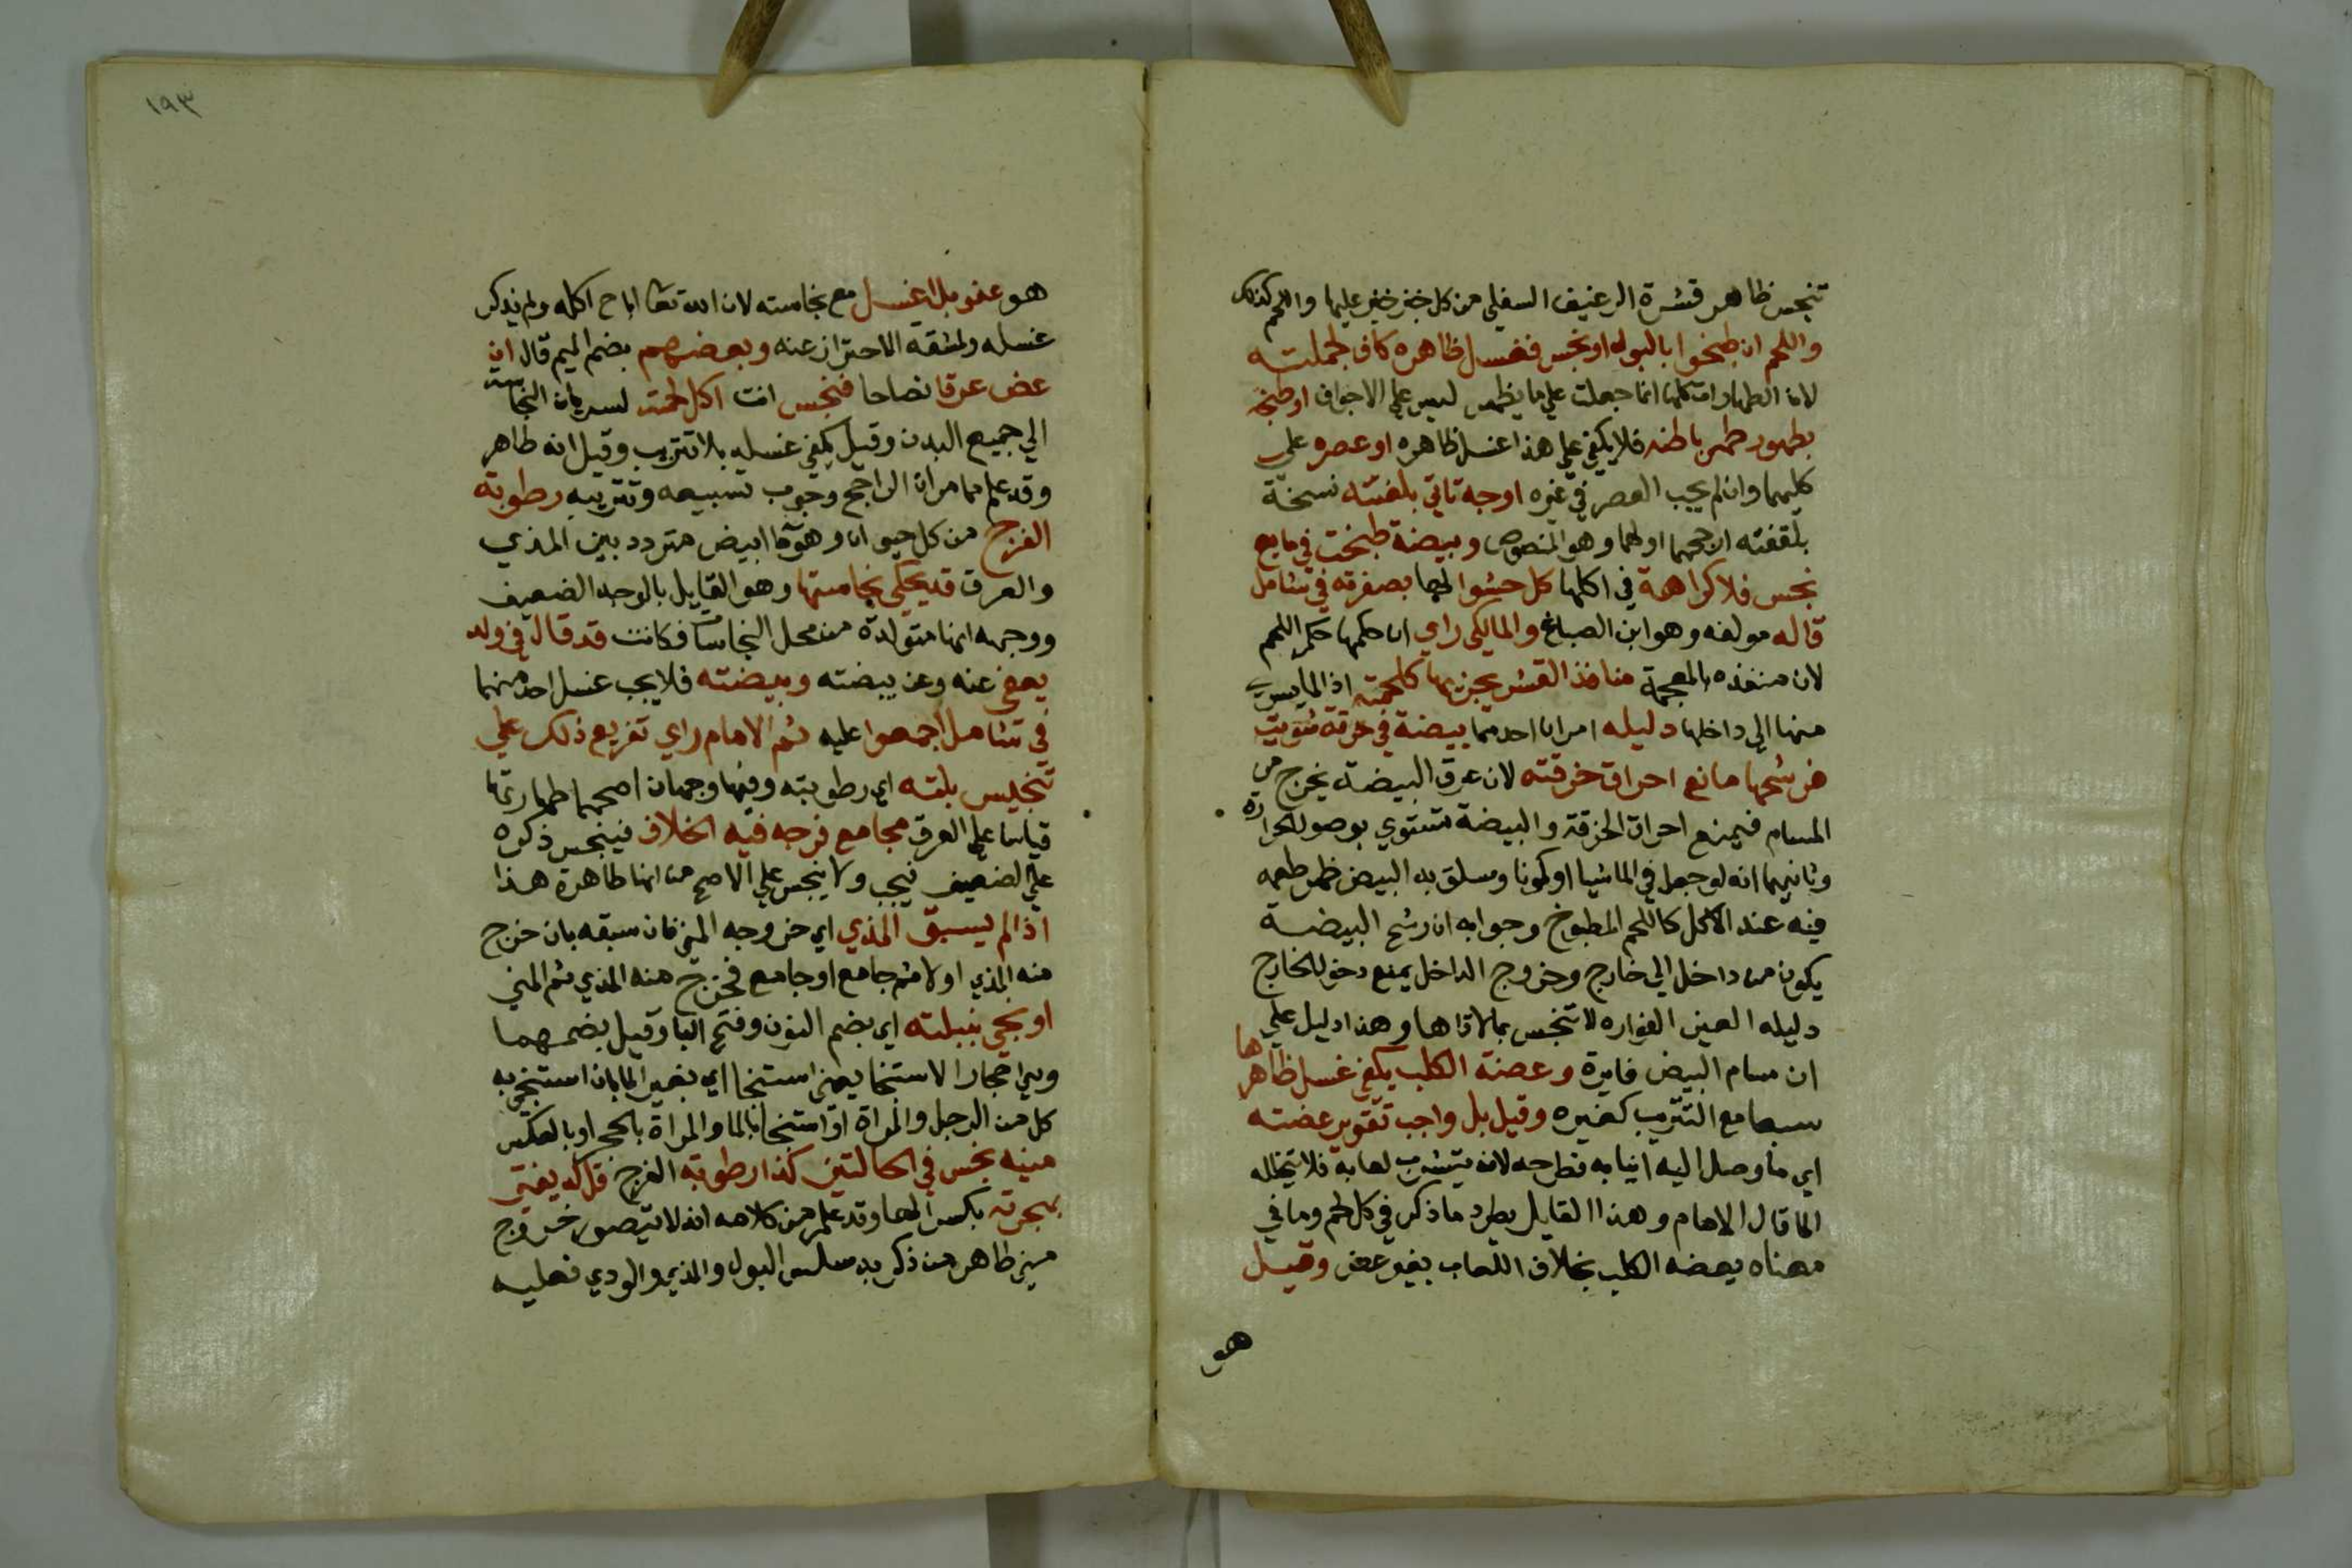 تنجس ظاهر قشرة الرغيف السفلي من كل خبز خبز عليها واللحم كذلك
واللحم ان طبخوا بالبول او نجس فغسل ظاهره كاف لجملته
لان الطهارات كلها انما جعلت علي ما يظهر ليس علي الاجواف او طبخه
بطهور طهر باطنه فلا يكفي علي هذا غسل ظاهره او عصره علي
كليهما وان لم يجب العصر في غيره اوجه تاتي بلغته نسخة
بلقفته ارجحهما اولهما وهو المنصوص وبيضة طبخت في مايع
نجس فلا كراهة في اكلها كل حشوا لها بصفرته في شامل
قاله مولفه وهو ابن الصباغ والمالكي راي ان حكمها حكم اللحم
لان منفذه بالمعجمة منافذ القشر يجزيها كلحمته اذ الما يسري
منها الي داخلها دليله امران احدهما بيضة في خرقة شويت
فرشحها مانع احراق خرقته لان عرق البيضة يخرج من
المسام فيمنع احراق الخرقة والبيضة تستوي بوصول الحرارة
وثانيهما انه لو جعل في الما شيا او كمونا وسلق به البيض ظهر طعمه
فيه عند الاكل كاللحم المطبوخ وجوابه ان رشح البيضة
يكون من داخل الي خارج وخروج الداخل يمنع دخول الخارج
دليله العين الفواره لا تنجس بما لاقاها وهذا دليل علي
ان مسام البيض فايرة وعضة الكلب يكفي غسل ظاهرها
سبعا مع التتريب كغيره وقيل بل واجب تقوير عضته
اي ما وصل اليه انيابه فطرحه لانه يتشرب لعابه فلا يتخلله
الما قال الامام وهذا القايل يطرد ما ذكر في كل لحم وما في
معناه يعضه الكلب بخلاف اللعاب بغير عض وقيل
هو
١٩٣
هو عفو بلا غسل مع نجاسته لان الله تعا اباح اكله ولم يذكر
غسله ولمشقة الاحتراز عنه وبعضهم بضم الميم قال ان
عض عرقا نضاحا فنجس انت اكل لحمته لسريان النجاسة
الي جميع البدن وقيل يكفي غسله بلا تتريب وقيل انه طاهر
وقد علم مما مر ان الراجح وجوب تسبيعه وتتريبه رطوبة
الفرج من كل حيوان وهو ما ابيض متردد بين المذي
والعرق قد يحكي نجاستها وهو القايل بالوجه الضعيف
ووجهه انها متولدة من محل النجاسة فكانت قد قال في ولد
يعفي عنه وعن بيضته وبيضته فلا يجب غسل احد منهما
في شامل اجمعوا عليه ثم الامام راي تفريع ذلك علي
تنجيس بلته اي رطوبته وفيها وجهان اصحهما طهارتها
قياسا علي العرق مجامع فرجه فيه الخلاف فينجس ذكره
علي الضعيف فيجب ولا ينجس علي الاصح من انها طاهرة هذا
اذا لم يسبق المذي اي خروجه المني فان سبقه بان خرج
منه المذي اولا ثم جامع او جامع فخرج منه المذي ثم المني
او نجي بنبلته اي بضم النون وفتح البا وقيل بضمهما
وهي احجار الاستنجا يعني استنجا اي بغير الما بان استنجي به
كل من الرجل والمراة او استنجا بالما والمراة بالحجر او بالعكس
منيه نجس في الحالتين كذا رطوبة الفرج قل له يفتي
بهجرته بكسر الها وقد علم من كلامه انه لا يتصور خروج
مني طاهر من ذكر به سلس البول والمذي والودي فعليه